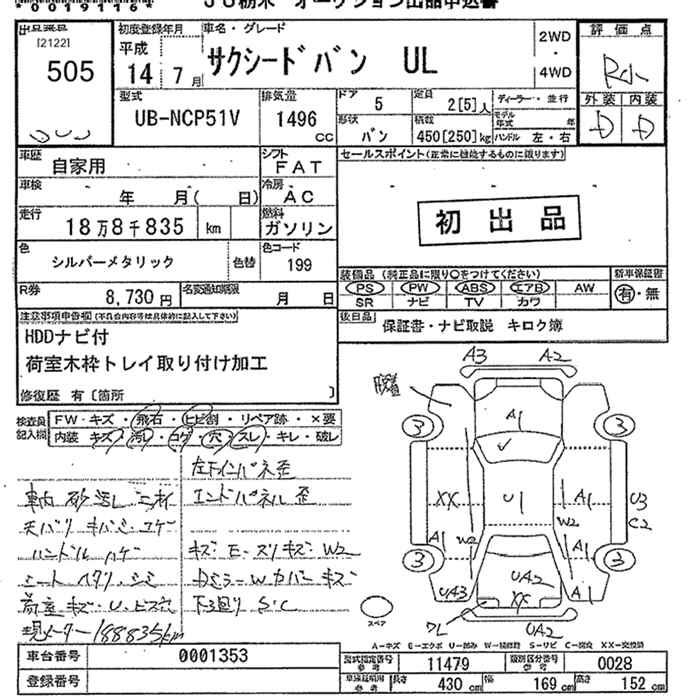 オークション出品申込書
[2122]
505
初度登録年月
平成
14 7月
車名・グレード
サクシードバン UL
2WD
・
4WD
評価点
外装 内装
D D
型式
UB-NCP51V
排気量
1496
CC
ドア
5
定員
2[5]人
形状
バン
積載
450[250]kg
ディーラー・並行
モデル年式 年
ハンドル 左・右
車歴
自家用
シフト
FAT
車検
年 月( 日)
冷房
AC
走行
18万8千835 km
燃料
ガソリン
色
シルバーメタリック
色替
色コード
199
R券
8,730円
名変通知期限
月 日
セールスポイント(正常に機能するものに限ります)
初出品
装備品(純正品に限り○をつけてください)
PS PW ABS エアB AW
SR ナビ TV カワ
新車保証書
有・無
後日品
保証書・ナビ取説 キロク簿
注意事項申告欄(不具合内容等は具体的に記入して下さい)
HDDナビ付
荷室木枠トレイ取り付け加工
修復歴 有〔箇所 〕
検査員
記入欄
FW・キズ・飛石・ヒビ割・リペア跡・×要
内装 キズ・汚れ・コゲ・穴・スレ・キレ・破レ
左下インパネ歪
エンドパネル 歪
天バリ キバミ・コゲ
ハンドル ハゲ
シート ヘタリ・シミ
荷室 キズ・U・ビス穴
現メーター188835km
キズ E・スリキズ W2
ドアミラーWカバー キズ
下廻り S・C
A3 A2
A1
3 3
XX
U1
A1
U3
C2
A1
W2
W2
3 3
UA3
UA2
XX
A1
UA2
スペア
A-キズ E-エクボ U-凹み W-補修跡 S-サビ C-腐食 XX-交換済
車台番号
0001353
登録番号
型式指定番号
参考
11479
類別区分番号
参考
0028
車検証項用
参考
長さ
430 cm
幅
169 cm
高さ
152 cm